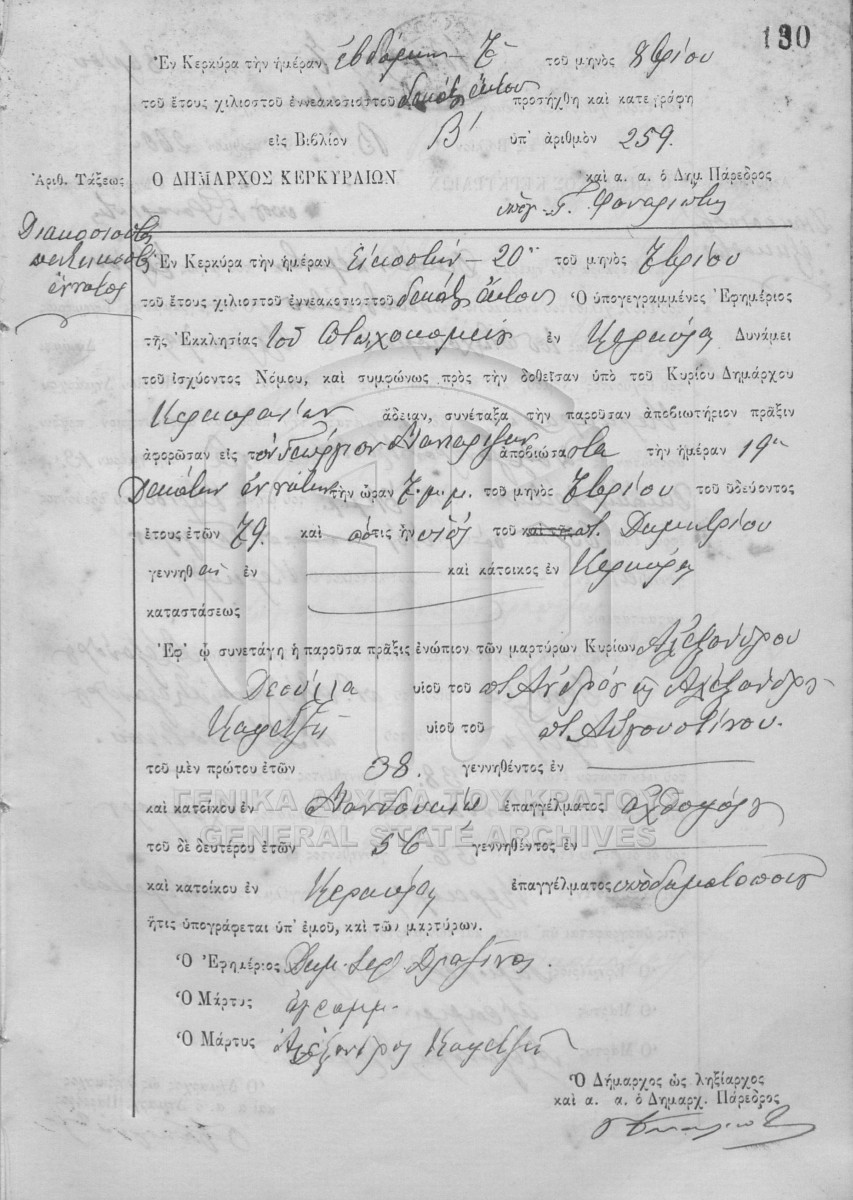 130
Ἐν Κερκύρᾳ τὴν ἡμέραν ἑβδόμην – 7 – τοῦ μηνὸς 8βρίου
τοῦ ἔτους χιλιοστοῦ ἐννεακοσιοστοῦ δεκάτου ὀκτώου προσήχθη καὶ κατεγράφη
εἰς Βιβλίον Β′ ὑπ’ ἀριθμὸν 259.
Ἀριθ. Τάξεως Ο ΔΗΜΑΡΧΟΣ ΚΕΡΚΥΡΑΙΩΝ καὶ α. α. ὁ Δημ. Πάρεδρος
ὑπογ. Γ. Φαναριώτης
Διακοσιοστὸς
πεντηκοστὸς
ἔννατος
Ἐν Κερκύρᾳ τὴν ἡμέραν Εἰκοστὴν – 20 – τοῦ μηνὸς 7βρίου
τοῦ ἔτους χιλιοστοῦ ἐννεακοσιοστοῦ Ὁ ὑπογεγραμμένος Ἐφημέριος
τῆς Ἐκκλησίας τοῦ Πτωχοκομείου ἐν Κερκύρᾳ Δυνάμει
τοῦ ἰσχύοντος Νόμου, καὶ συμφώνως πρὸς τὴν δοθεῖσαν ὑπὸ τοῦ Κυρίου Δημάρχου
Κερκυραίων ἄδειαν, συνέταξα τὴν παροῦσαν ἀποβιωτήριον πρᾶξιν
ἀφορῶσαν εἰς τὸν Γεώργιον ἀποβιώσαντα τὴν ἡμέραν 19ην
Δεκάτην ἐννάτην τὴν ὥραν 7. μ. μ. τοῦ μηνὸς 7βρίου τοῦ ὁδεύοντος
ἔτους ἐτῶν 79. καὶ ὅστις ἦν υἱὸς τοῦ π. Δημητρίου
γεννηθεὶς ἐν καὶ κάτοικος ἐν Κερκύρᾳ
καταστάσεως
Ἐφ’ ᾧ συνετάγη ἡ παροῦσα πρᾶξις ἐνώπιον τῶν μαρτύρων Κυρίων Ἀλεξάνδρου
Δεσύλλα υἱοῦ τοῦ π. Ἀνδρέου κ Ἀλεξάνδρου
Καφετζῆ υἱοῦ τοῦ π. Αὐγουστίνου.
τοῦ μὲν πρώτου ἐτῶν 38. γεννηθέντος ἐν
καὶ κατοίκου ἐν Μανδουκίῳ ἐπαγγέλματος ἀχθοφόρου
τοῦ δὲ δευτέρου ἐτῶν 56 γεννηθέντος ἐν
καὶ κατοίκου ἐν Κερκύρᾳ ἐπαγγέλματος ὑποδηματοποιοῦ
ἥτις ὑπογράφεται ὑπ’ ἐμοῦ, καὶ τῶν μαρτύρων.
Ὁ Ἐφημέριος Δημ. Ἱερ.
Ὁ Μάρτυς ἀγραμμ.
Ὁ Μάρτυς Ἀλέξανδρος Καφετζῆς
Ὁ Δήμαρχος ὡς ληξίαρχος
καὶ α. α. ὁ Δημαρχ. Πάρεδρος
ΓΕΝΙΚΑ ΑΡΧΕΙΑ ΤΟΥ ΚΡΑΤΟΥΣ
GENERAL STATE ARCHIVES